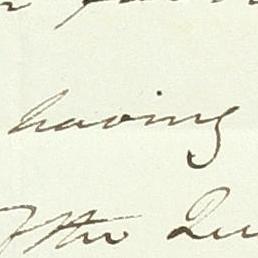 having
of the Qu